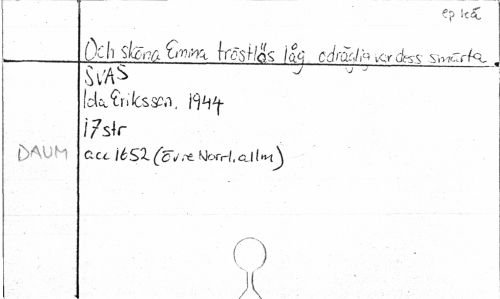 ep leå
Och sköna Emma tröstlös låg odräglig var dess smärta.
SVAS
Ida Eriksson, 1944
17 str
DAUM acc 1652 (Övre Norrl. allm)